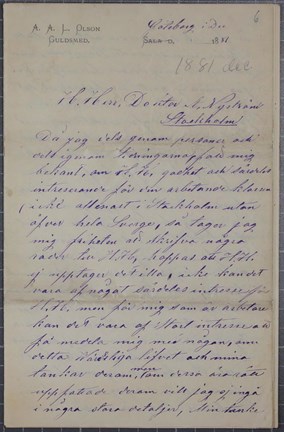 A. A. L. Olson
Guldsmed.
Göteborg i Dec
1881
6
1881 dec
H. Herr Doctor A. Nyström
Stockholm
Då jag dels genom personer och
dels igenom tidningarna fått mig
bekant, om H. H. godhet och särdeles
intresserande för den arbetande klassen
icke allenast i Stockholm utan
öfver hela Sverge, så tager jag
mig friheten att skrifva några
rader till H. H., hoppas att H. H.
ej upptager det illa, icke kan det
vara af något särdeles intresse för
H. H. men för mig som är arbetare
kan det vara af stort intresse att
få medela mig med någon, om
detta lifvet och mina
tankar derom, om dessa äro rätt
uppfatade derom vill jag ej ingå
i några stora detaljer, Min tanke